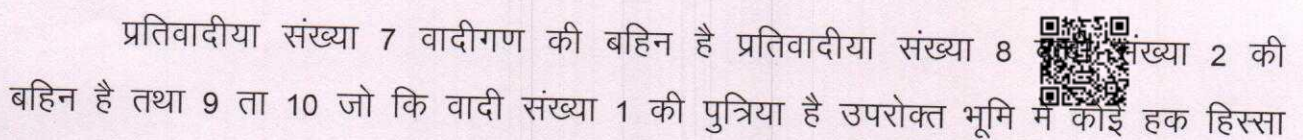 प्रतिवादीया संख्या 7 वादीगण की बहिन है प्रतिवादीया संख्या 8 संख्या 2 की
बहिन है तथा 9 ता 10 जो कि वादी संख्या 1 की पुत्रिया है उपरोक्त भूमि में कोई हक हिस्सा